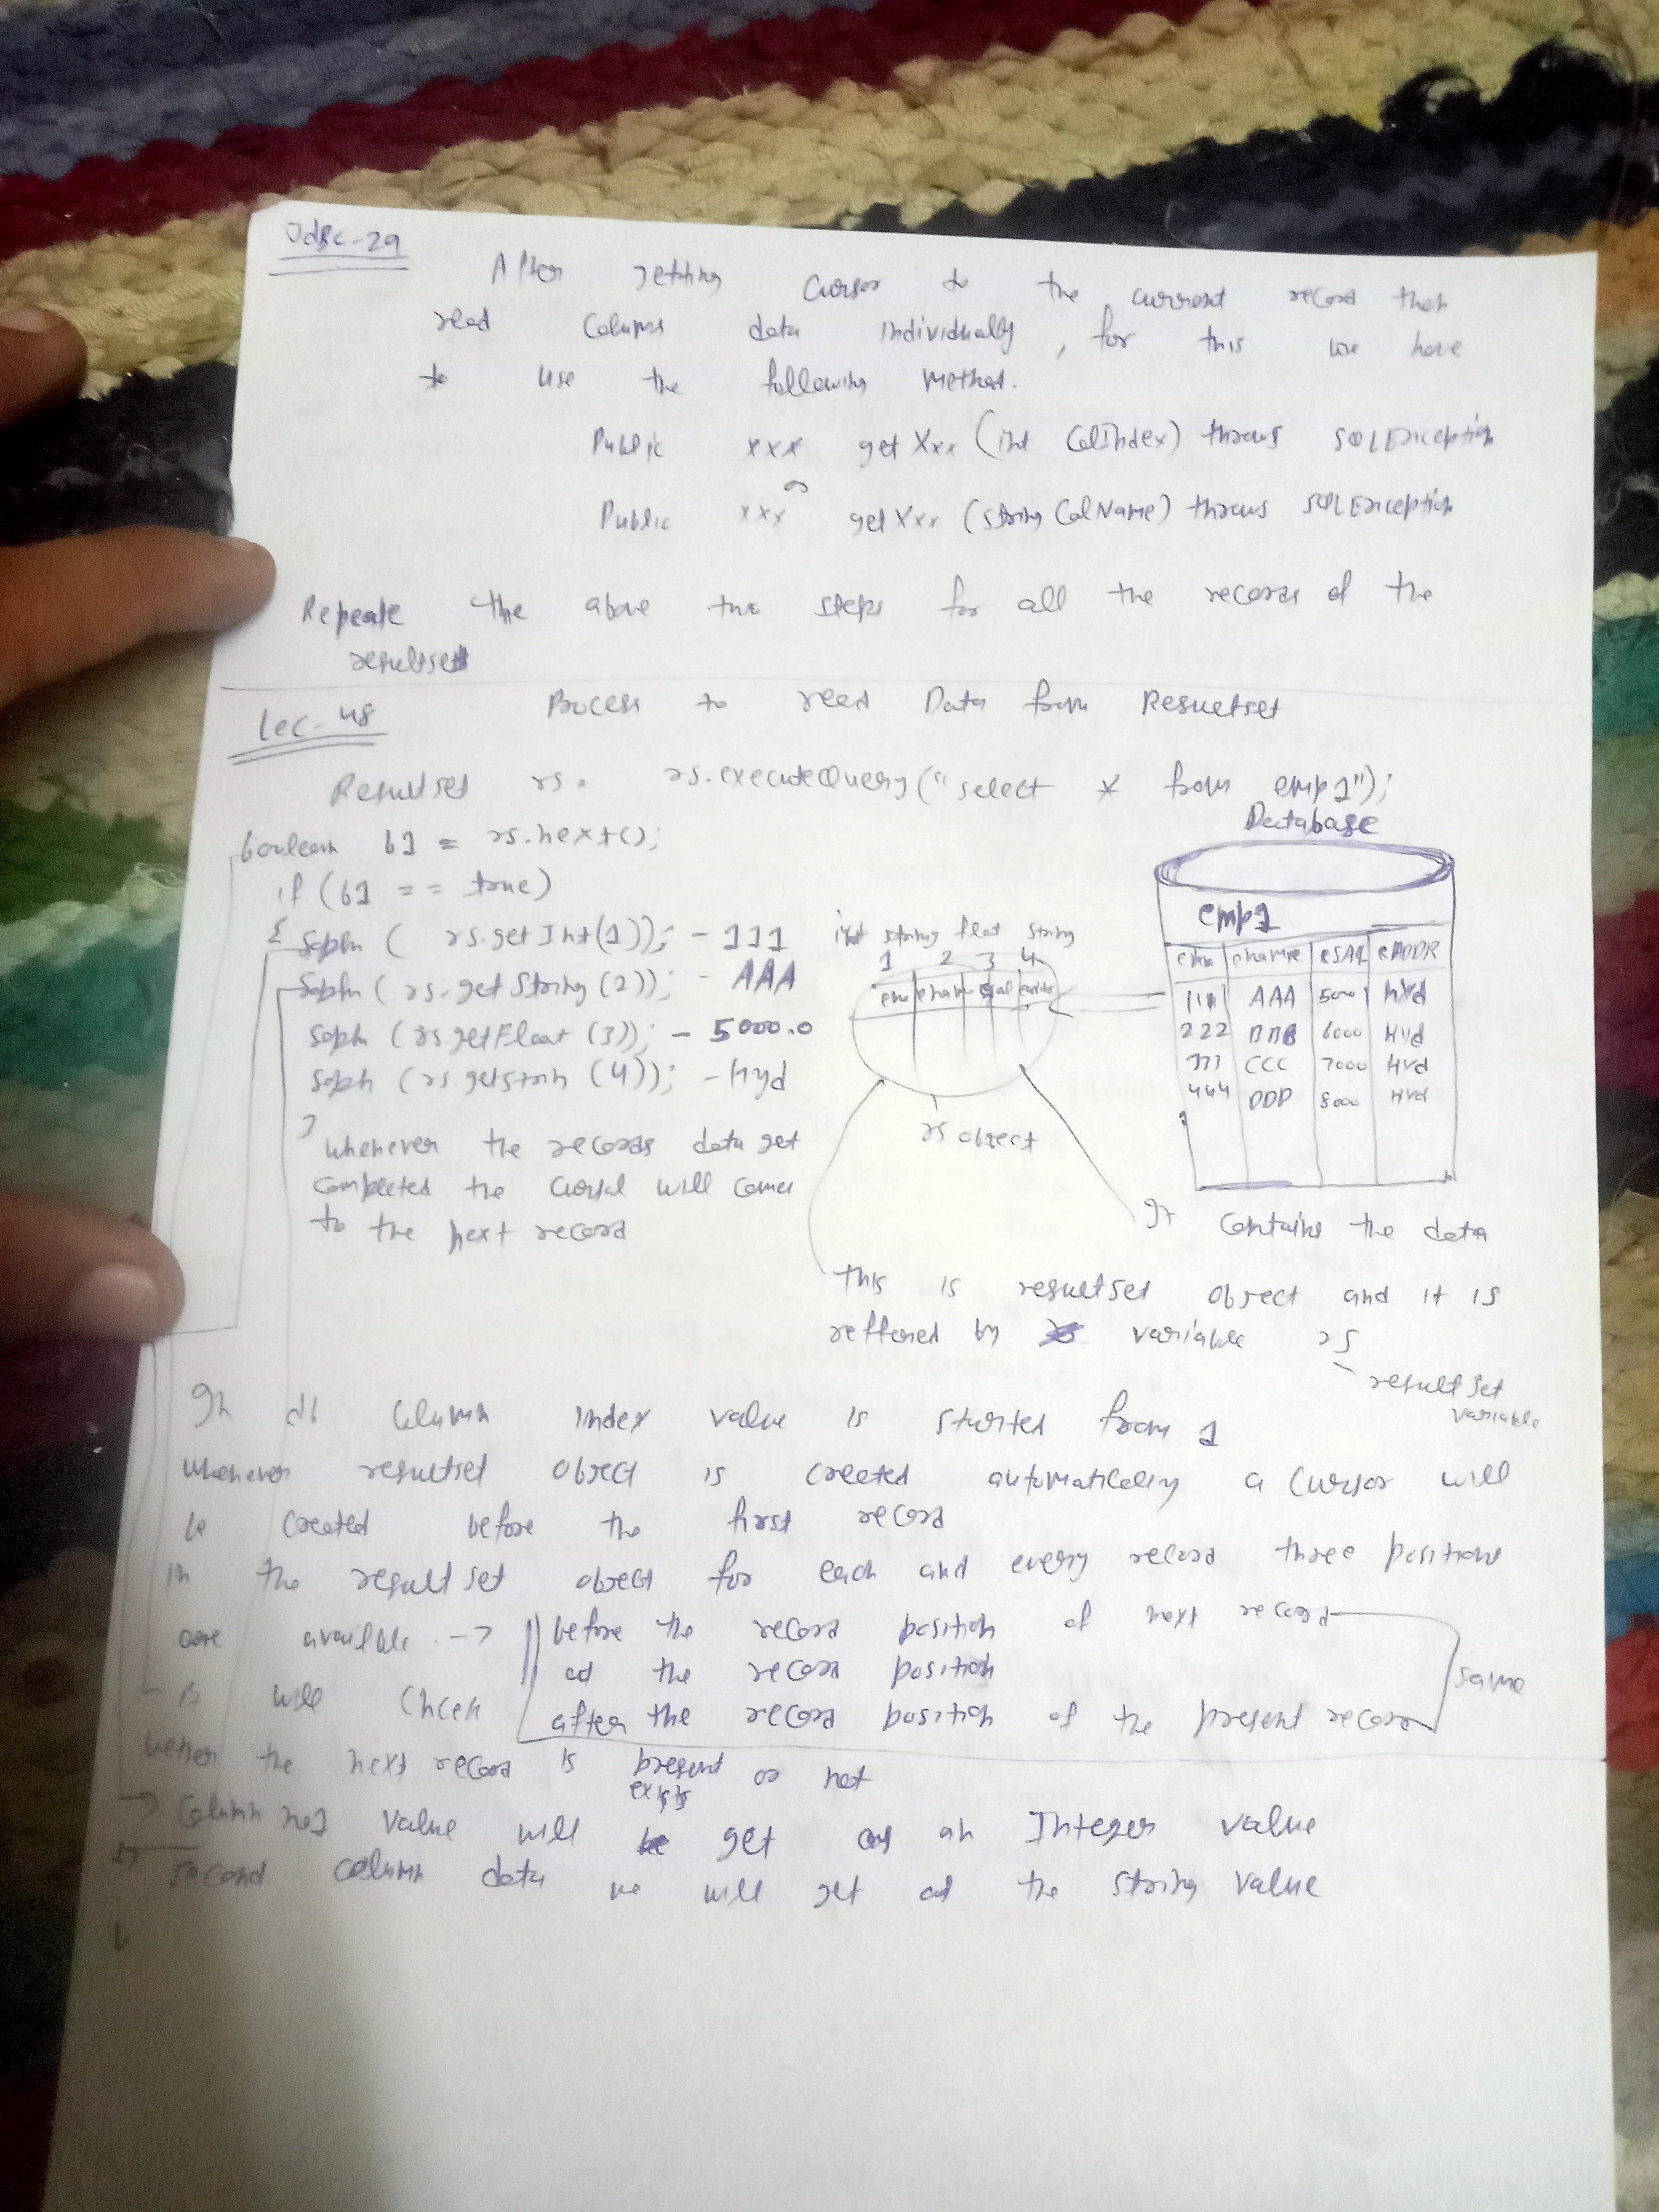 JdBc-29
After getting Cursor to the current record then
read Columns data individually, for this we have
to use the following method.
Public xxx getXxx (int ColIndex) throws SQLException
or
Public xxx getXxx (String ColName) throws SQLException
Repeate the above two steps for all the records of the
resultset
Lec-48
Process to read Data from Resultset
Resultset rs = rs.executeQuery("select * from emp1");
boolean b1 = rs.next();
if (b1 == true)
{ Sopln ( rs.getInt(1)); - 111
Sopln ( rs.getString (2)); - AAA
Sopln ( rs getFloat (3)); - 5000.0
Sopln ( rs getString (4)); - Hyd
}
whenever the records data get
completed the cursor will comes
to the next record
int string float string
1 2 3 4
eno ename esal eaddr
rs object
Database
emp1
eno ename eSAL eADDR
111 AAA 5000 Hyd
222 BBB 6000 Hyd
333 CCC 7000 Hyd
444 DDD 8000 Hyd
It contains the data
This is resultset object and it is
reffered by variable rs
resultset
variable
In db Column index value is started from 1
whenever resultset object is created automatically a cursor will
be created before the first record
in the resultset object for each and every record three positions
are available -> before the record position of next record
at the record position
after the record position of the present record
same
will check
wether the next record is present or not
exists
-> Column no1 value will get as an Integer value
second column data we will get as the string value